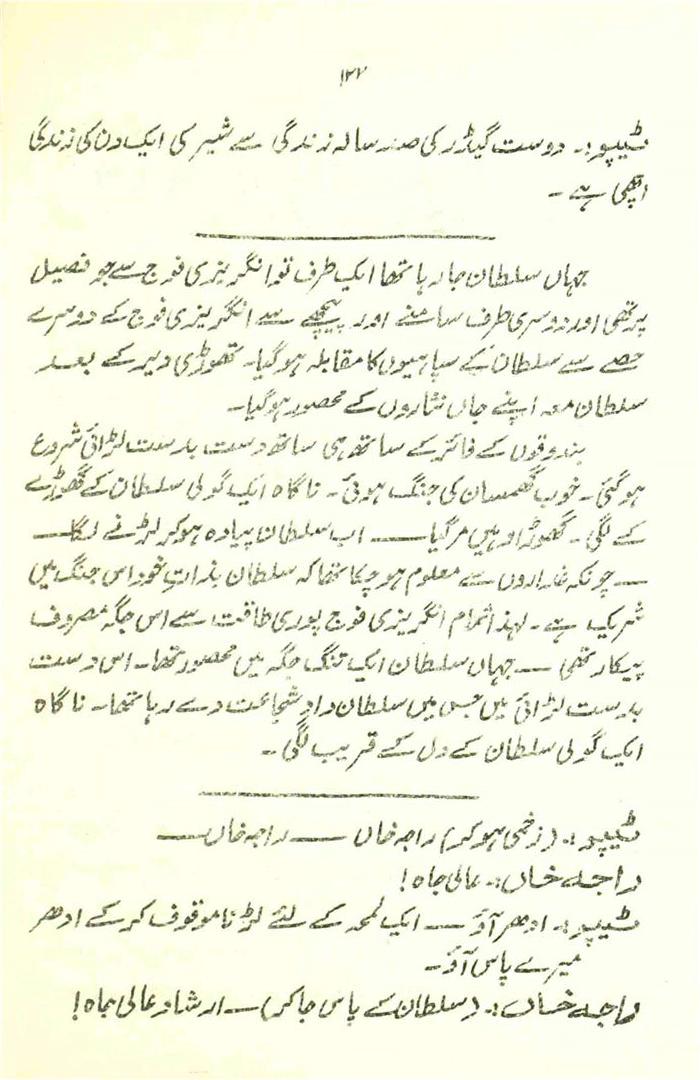 ۱۲۷
ٹیپو:۔ دوست گیڈر کی صد سالہ زندگی سے شیر کی ایک دن کی زندگی
اچھی ہے۔
جہاں سلطان جا رہا تھا ایک طرف تو انگریزی فوج سے جو فصیل
پر تھی اور دوسری طرف سامنے اور پیچھے سے انگریزی فوج کے دوسرے
حصے سے سلطان کے سپاہیوں کا مقابلہ ہو گیا۔ تھوڑی دیر کے بعد
سلطان معہ اپنے جاں نثاروں کے محصور ہو گیا۔
بندوقوں کے فائر کے ساتھ ہی ساتھ دست بدست لڑائی شروع
ہو گئی۔ خوب گھمسان کی جنگ ہوئی۔ ناگاہ ایک گولی سلطان کے گھوڑے
کے لگی۔ گھوڑا وہیں مر گیا —— اب سلطان پیادہ ہو کر لڑنے لگا —
— چونکہ غداروں سے معلوم ہو چکا تھا کہ سلطان بذاتِ خود اس جنگ میں
شریک ہے۔ لہذا تمام انگریزی فوج پوری طاقت سے اس جگہ مصروف
پیکار تھی — جہاں سلطان ایک تنگ جگہ میں محصور تھا۔ اس دست
بدست لڑائی میں جس میں سلطان دادِ شجاعت دے رہا تھا۔ ناگاہ
ایک گولی سلطان کے دل کے قریب لگی۔
ٹیپو:۔ (زخمی ہو کر) راجہ خاں —— راجہ خاں —
راجہ خاں:۔ عالی جاہ!
ٹیپو:۔ ادھر آؤ — ایک لمحہ کے لئے لڑنا موقوف کر کے ادھر
میرے پاس آؤ۔
راجہ خاں:۔ (سلطان کے پاس جا کر) — ارشاد عالی جاہ!